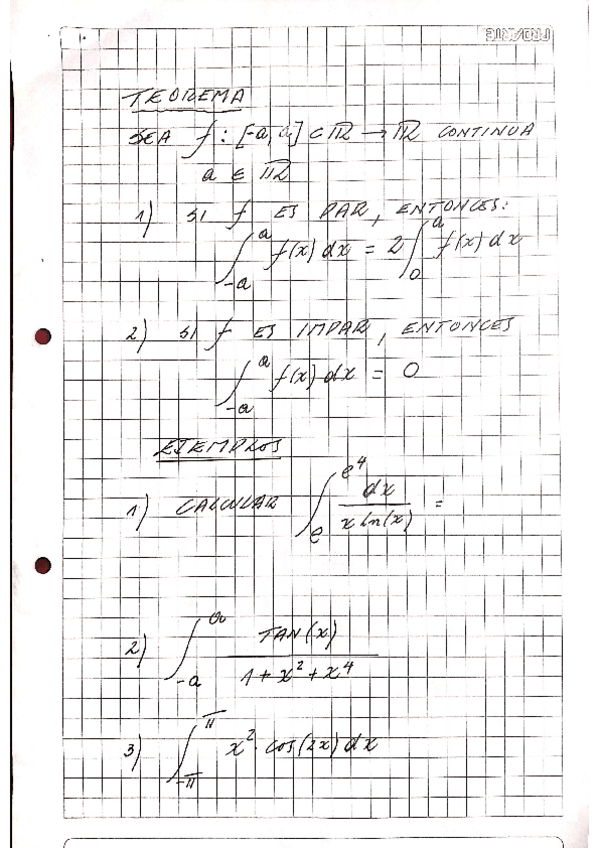 TEOREMA
SEA f : [-a, a] ⊂ ℝ → ℝ CONTINUA
a ∈ ℝ
1) SI f ES PAR, ENTONCES:
∫_{-a}^{a} f(x) dx = 2 ∫_{0}^{a} f(x) dx
2) SI f ES IMPAR, ENTONCES
∫_{-a}^{a} f(x) dx = 0
EJEMPLOS
1) CALCULAR ∫_{e}^{e^4} dx / (x ln(x)) =
2) ∫_{-a}^{a} TAN(x) / (1 + x^2 + x^4)
3) ∫_{-π}^{π} x^2 · cos(2x) dx